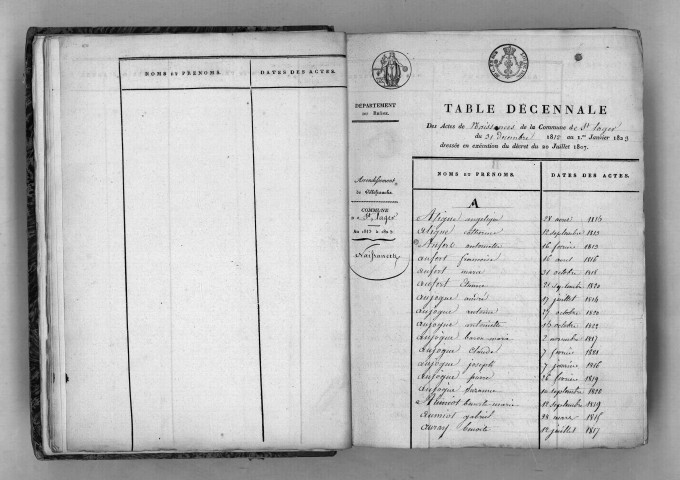 NOMS ET PRÉNOMS. DATES DES ACTES.
DÉPARTEMENT
DU RHÔNE.
Arrondissement
de Villefranche
COMMUNE
de St. Lager
An 1813 à 1823
Naissances
TABLE DÉCENNALE
Des Actes de Naissances de la Commune de St. Lager
du 31 Decembre 1812 au 1.er Janvier 1823
dressée en exécution du décret du 20 Juillet 1807.
NOMS ET PRÉNOMS. DATES DES ACTES.
A
angelique 28 1816
12 septembre 1813
antoinette 16 fevrier 1813
aufort francoise 16 avril 1816
aufort 31 octobre 1818
aufort Etienne 21 septembre 1820
aujogue andré 17 juillet 1814
aujogue antoine 27 octobre 1820
aujogue antoinette octobre 1822
aujogue marie 2 novembre 1817
aujogue Claude 7 1821
aujogue joseph 7 janvier 1816
aujogue pierre 26 fevrier 1819
aujogue suzanne septembre 1820
Aumiot marie 12 septembre 1819
aumiot gabriel 28 mars
auray benoite 12 juillet 1817